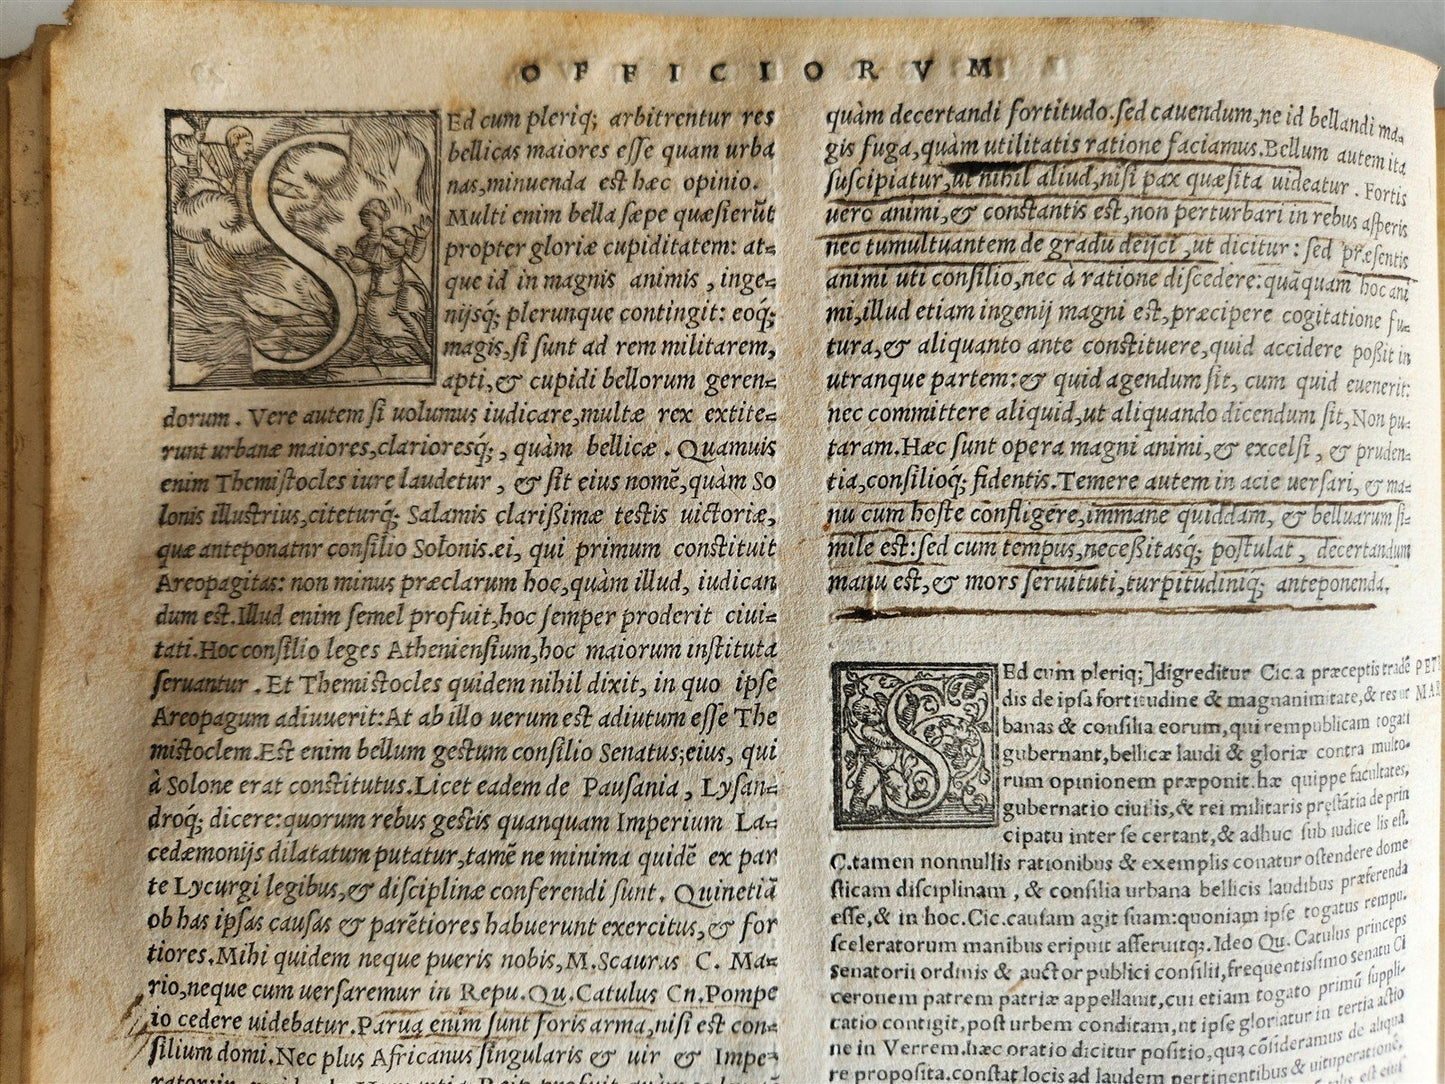 OFFICIORVM
SEd cum pleriq; arbitrentur res
bellicas maiores esse quam urba
nas,minuenda est hæc opinio.
Multi enim bella sæpe quæsierūt
propter gloriæ cupiditatem: at-
que id in magnis animis, inge-
nijsq́; plerunque contingit: eoq́;
magis,si sunt ad rem militarem,
apti,& cupidi bellorum geren-
dorum. Vere autem si uolumus iudicare,multæ rex extite-
runt urbanæ maiores,clarioresq́;, quàm bellicæ. Quamuis
enim Themistocles iure laudetur, & sit eius nomē,quàm So
lonis illustrius,citeturq́; Salamis clarißimæ testis uictoriæ,
quæ anteponatnr consilio Solonis.ei, qui primum constituit
Areopagitas: non minus præclarum hoc,quàm illud, iudican
dum est.Illud enim semel profuit,hoc semper proderit ciui-
tati.Hoc consilio leges Atheniensium,hoc maiorum instituta
seruantur. Et Themistocles quidem nihil dixit, in quo ipse
Areopagum adiuuerit:At ab illo uerum est adiutum esse The
mistoclem.Est enim bellum gestum consilio Senatus;eius, qui
à Solone erat constitutus.Licet eadem de Pausania, Lysan-
droq́; dicere:quorum rebus gestis quanquam Imperium La-
cedæmonijs dilatatum putatur,tamē ne minima quidē ex par
te Lycurgi legibus,& disciplinæ conferendi sunt. Quinetiā
ob has ipsas causas & parētiores habuerunt exercitus,& for
tiores.Mihi quidem neque pueris nobis,M.Scaurus C. Ma-
rio,neque cum uersaremur in Repu.Qu.Catulus Cn.Pompe
io cedere uidebatur.Parua enim sunt foris arma,nisi est con-
silium domi.Nec plus Africanus singularis & uir & Impe-
quàm decertandi fortitudo.sed cauendum,ne id bellandi ma-
gis fuga,quàm utilitatis ratione faciamus.Bellum autem ita
suscipiatur,ut nihil aliud,nisi pax quæsita uideatur. Fortis
uero animi,& constantis est,non perturbari in rebus asperis
nec tumultuantem de gradu deijci,ut dicitur: sed præsentis
animi uti consilio,nec à ratione discedere:quāquam hoc ani
mi,illud etiam ingenij magni est,præcipere cogitatione fu-
tura,& aliquanto ante constituere,quid accidere poßit in
utranque partem:& quid agendum sit, cum quid euenerit:
nec committere aliquid,ut aliquando dicendum sit,Non pu-
taram.Hæc sunt opera magni animi,& excelsi, & pruden-
tia,consilioq́; fidentis.Temere autem in acie uersari, & ma-
nu cum hoste confligere,immane quiddam, & belluarum si-
mile est:sed cum tempus,neceßitasq́; postulat, decertandum
manu est,& mors seruituti,turpitudiniq́; anteponenda.
SEd cum pleriq;]digreditur Cic.a præceptis tradē
dis de ipsa fortitudine & magnanimitate,& res ur
banas & consilia eorum,qui rempublicam togati
gubernant,bellicæ laudi & gloriæ contra multo-
rum opinionem præponit.hæ quippe facultates,
gubernatio ciuilis,& rei militaris pręstātia de prin
cipatu inter se certant,& adhuc sub iudice lis est.
C.tamen nonnullis rationibus & exemplis conatur ostendere dome
sticam disciplinam, & consilia urbana bellicis laudibus præferenda
esse,& in hoc.Cic.causam agit suam:quoniam ipse togatus rempu.
sceleratorum manibus eripuit asseruitq;. Ideo Qu. Catulus princeps
senatorii ordinis & auctor publici consilii,frequentissimo senatu Ci
ceronem patrem patriæ appellauit,cui etiam togato primū suppli-
catio contigit,post urbem conditam,ut ipse gloriatur in tertia actio
ne in Verrem.hæc oratio dicitur positio,qua cōsideramus de aliqua
re proposita.constat locis ad laudem pertinentibus & uituperationē,
PET
MAR